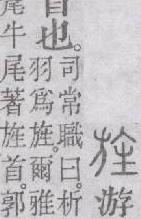 旌游
首也。
司常職曰。析
羽爲旌。爾雅
尾牛尾著旌首。郭